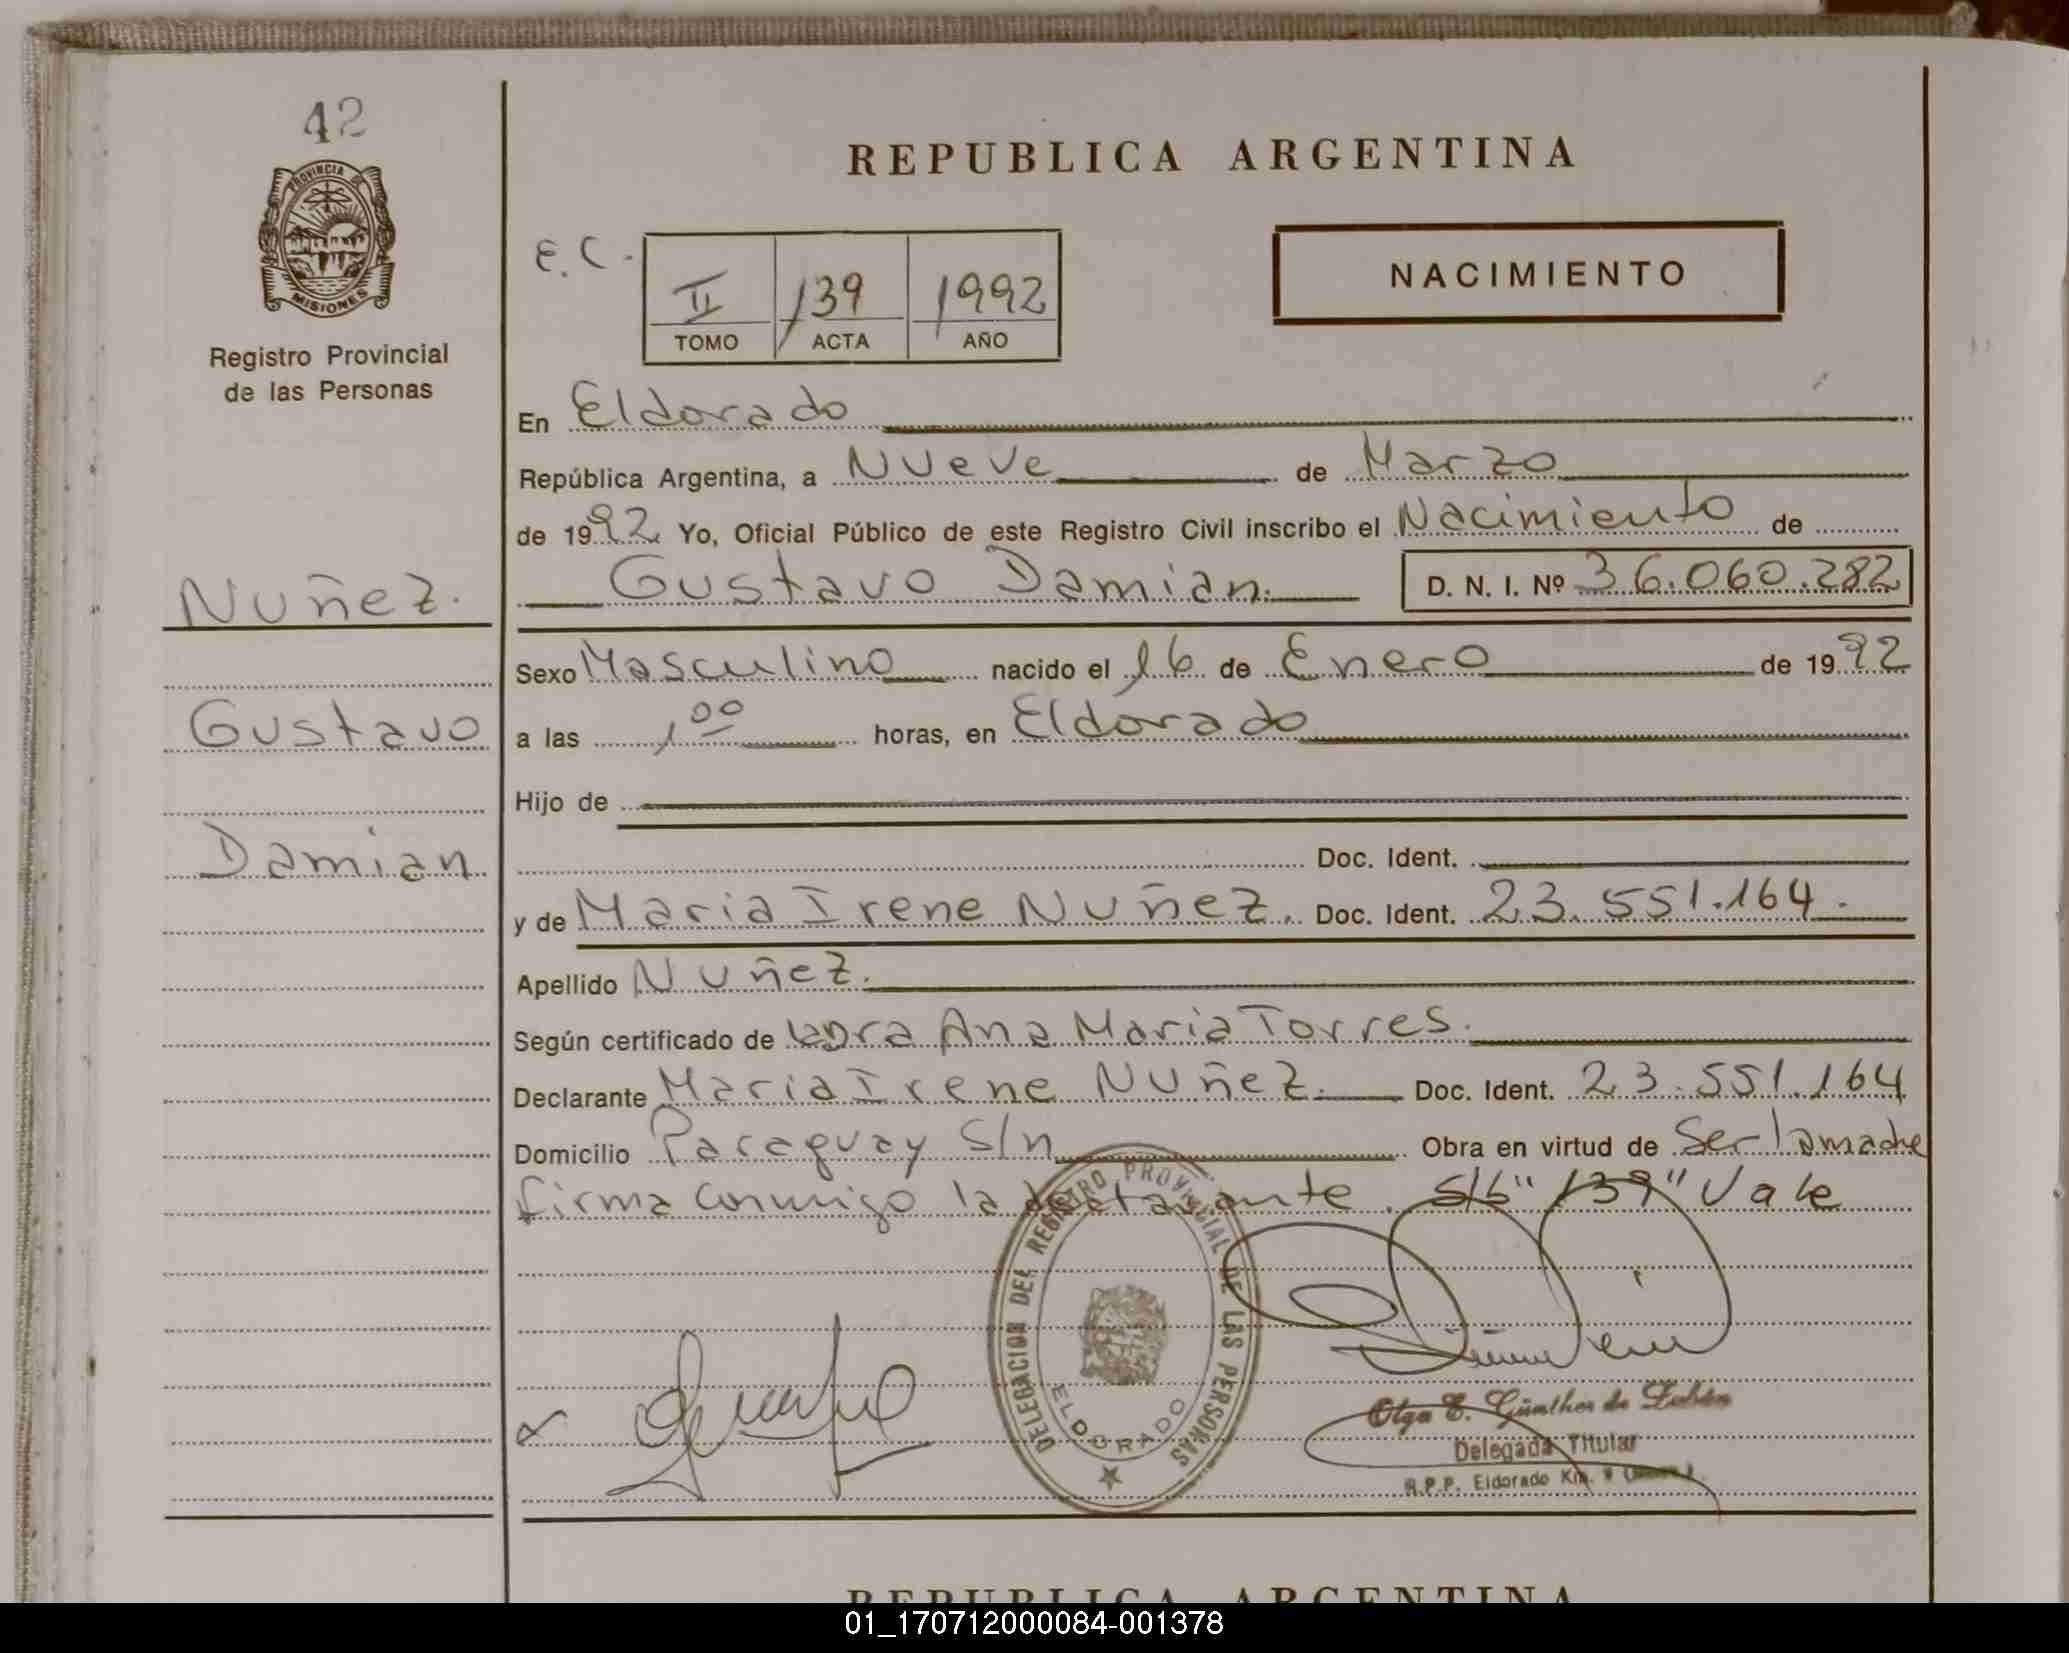 42
PROVINCIA DE
MISIONES
Registro Provincial
de las Personas
Nuñez.
Gustavo
Damian
REPUBLICA ARGENTINA
E.C.
II 139 1992
TOMO ACTA AÑO
NACIMIENTO
En Eldorado
República Argentina, a Nueve de Marzo
de 1992 Yo, Oficial Público de este Registro Civil inscribo el Nacimiento de
Gustavo Damian. D. N. I. Nº 36.060.282
Sexo Masculino nacido el 16 de Enero de 1992
a las 1 00 horas, en Eldorado
Hijo de
Doc. Ident.
y de Maria Irene Nuñez. Doc. Ident. 23.551.164.
Apellido Nuñez.
Según certificado de Dra Ana Maria Torres.
Declarante Maria Irene Nuñez. Doc. Ident. 23.551.164
Domicilio Paraguay S/n Obra en virtud de Ser la madre
firma conmigo la . S/b "139" Vale
DELEGACION DEL REGISTRO PROVINCIAL DE LAS PERSONAS
ELDORADO
Olga E. Günther de
Delegada Titular
R.P.P. Eldorado Km. 9
REPUBLICA ARGENTINA
01_170712000084-001378